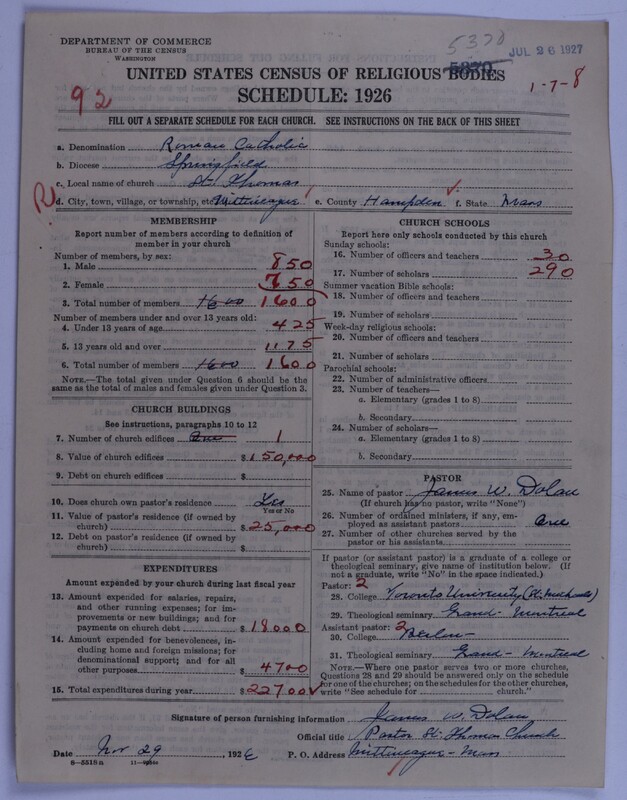 DEPARTMENT OF COMMERCE
BUREAU OF THE CENSUS
WASHINGTON
5370
JUL 26 1927
5370
UNITED STATES CENSUS OF RELIGIOUS BODIES
92
SCHEDULE: 1926
1-7-8
FILL OUT A SEPARATE SCHEDULE FOR EACH CHURCH. SEE INSTRUCTIONS ON THE BACK OF THIS SHEET
a. Denomination Roman Catholic
b. Diocese Springfield
c. Local name of church St. Thomas
R
d. City, town, village, or township, etc. Mittineague e. County Hampden f. State Mass
MEMBERSHIP
Report number of members according to definition of member in your church
Number of members, by sex:
1. Male 850
2. Female 750
3. Total number of members 1600 1600
Number of members under and over 13 years old:
4. Under 13 years of age 425
5. 13 years old and over 1175
6. Total number of members 1600 1600
NOTE.—The total given under Question 6 should be the same as the total of males and females given under Question 3.
CHURCH BUILDINGS
See instructions, paragraphs 10 to 12
7. Number of church edifices One 1
8. Value of church edifices $150,000
9. Debt on church edifices $
10. Does church own pastor's residence Yes
Yes or No
11. Value of pastor's residence (if owned by church) $25,000
12. Debt on pastor's residence (if owned by church) $
EXPENDITURES
Amount expended by your church during last fiscal year
13. Amount expended for salaries, repairs, and other running expenses; for improvements or new buildings; and for payments on church debt $18000
14. Amount expended for benevolences, including home and foreign missions; for denominational support; and for all other purposes $4700
15. Total expenditures during year $22700
CHURCH SCHOOLS
Report here only schools conducted by this church
Sunday schools:
16. Number of officers and teachers 30
17. Number of scholars 290
Summer vacation Bible schools:
18. Number of officers and teachers
19. Number of scholars
Week-day religious schools:
20. Number of officers and teachers
21. Number of scholars
Parochial schools:
22. Number of administrative officers
23. Number of teachers—
a. Elementary (grades 1 to 8)
b. Secondary
24. Number of scholars—
a. Elementary (grades 1 to 8)
b. Secondary
PASTOR
25. Name of pastor James W. Dolan
(If church has no pastor, write "None")
26. Number of ordained ministers, if any, employed as assistant pastors One
27. Number of other churches served by the pastor or his assistants
If pastor (or assistant pastor) is a graduate of a college or theological seminary, give name of institution below. (If not a graduate, write "No" in the space indicated.)
Pastor: 2
28. College Toronto University (St. Michaels)
29. Theological seminary Grand - Montreal
Assistant pastor: 2
30. College
31. Theological seminary Grand - Montreal
NOTE.—Where one pastor serves two or more churches, Questions 28 and 29 should be answered only on the schedule for one of the churches; on the schedules for the other churches, write "See schedule for church."
Signature of person furnishing information James W. Dolan
Official title Pastor St. Thomas Church
Date Nov 29, 1926 P. O. Address Mittineague - Mass
8—5518a